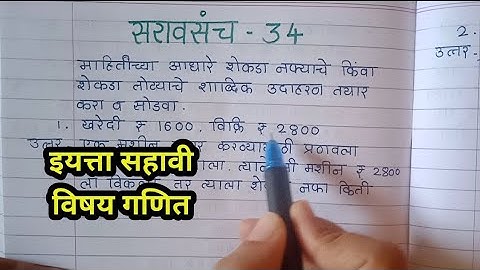 सरावसंच - 34
माहितीच्या आधारे शेकडा नफ्याचे किंवा
शेकडा तोट्याचे शाब्दिक उदाहरण तयार
करा व सोडवा.
1. खरेदी ₹ 1600, विक्रि ₹ 2800
उत्तर एक मशीन करण्यासाठी प्रणवला
आला. त्याने ती मशीन ₹ 2800
ला विकली तर त्याला नफा किती
इयत्ता सहावी
विषय गणित
2.
उत्तर